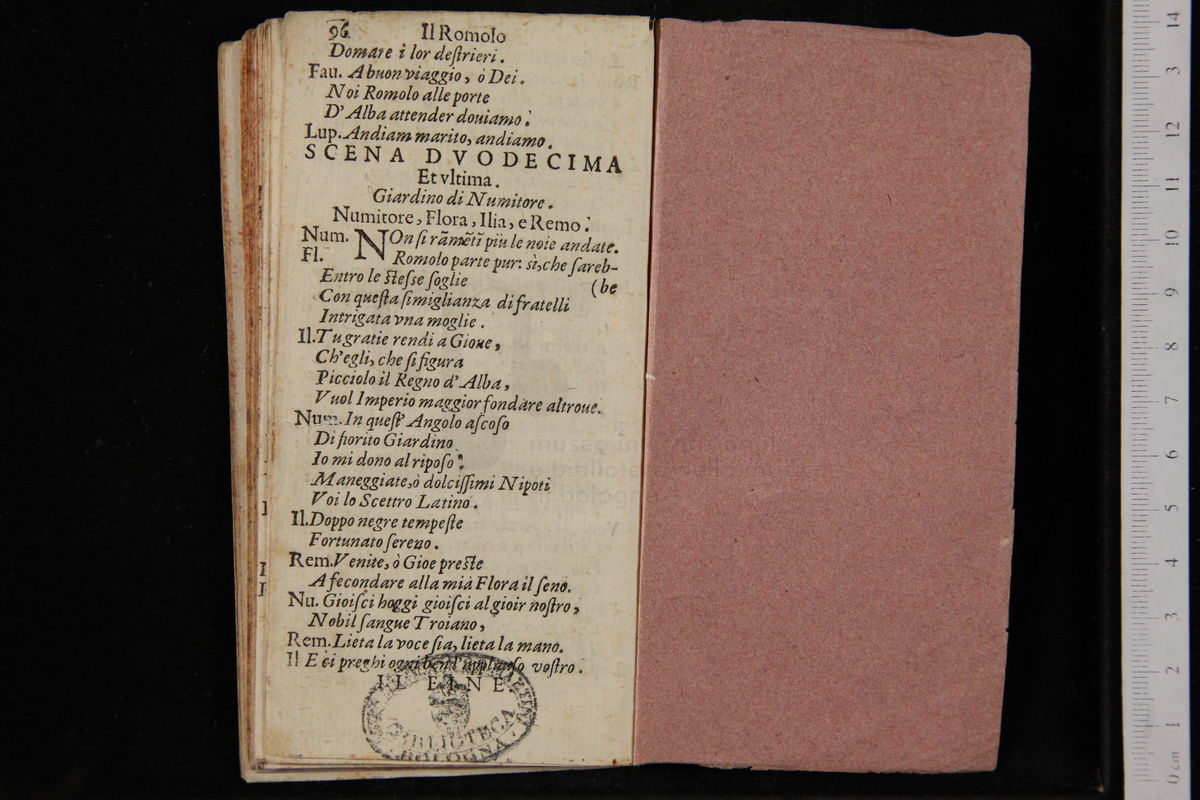 96 Il Romolo
Domare i lor deſtrieri.
Fau. A buon viaggio, ò Dei.
Noi Romolo alle porte
D'Alba attender douiamo.
Lup. Andiam marito, andiamo.
SCENA DVODECIMA
Et vltima.
Giardino di Numitore.
Numitore, Flora, Ilia, e Remo.
Num. NOn ſi rãmẽti più le noie andate.
Fl. Romolo parte pur: sì, che ſareb-
Entro le ſteſse ſoglie (be
Con queſta ſimiglianza di fratelli
Intrigata vna moglie.
Il. Tu gratie rendi a Gioue,
Ch'egli, che ſi figura
Picciolo il Regno d'Alba,
Vuol Imperio maggior fondare altroue.
Num. In queſt' Angolo aſcoſo
Di fiorito Giardino
Io mi dono al ripoſo:
Maneggiate, ò dolciſſimi Nipoti
Voi lo Scettro Latino.
Il. Doppo negre tempeſte
Fortunato ſereno.
Rem. Venite, ò Gioe preſte
A fecondare alla mia Flora il ſeno.
Nu. Gioiſci hoggi gioiſci al gioir noſtro,
Nobil ſangue Troiano,
Rem. Lieta la voce ſia, lieta la mano.
Il E ci preghi ogni ben l'applauſo voſtro.
IL FINE
BIBLIOTECA
BOLOGNA
14
3
12
11
10
9
8
7
6
5
4
3
2
1
0 cm